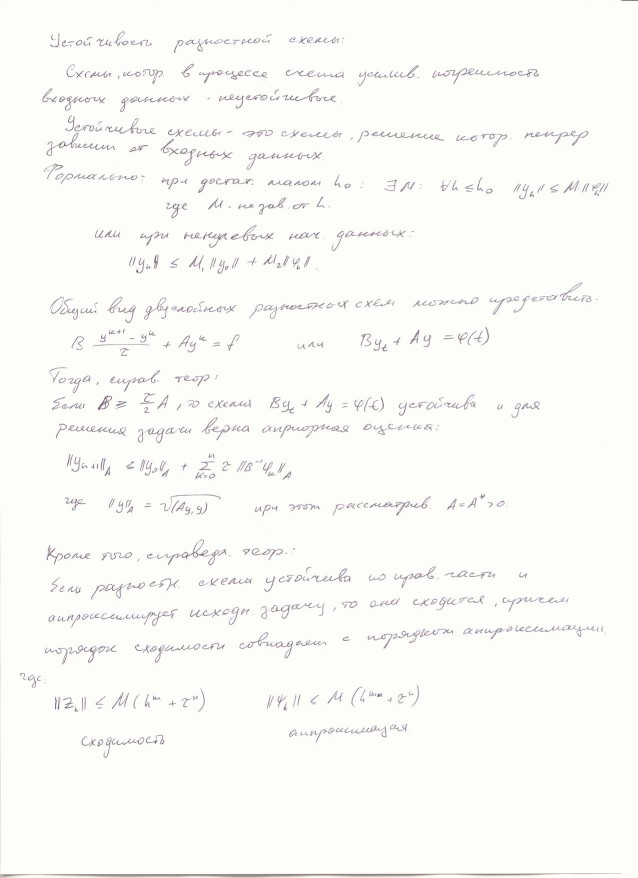 Устойчивость разностной схемы:
Схемы, котор. в процессе счета усилив. погрешность
входных данных - неустойчивые.
Устойчивые схемы - это схемы, решение котор. непрер
зависит от входных данных.
Формально: при достат. малом h₀: ∃ M: ∀h ≤ h₀ ||yₕ|| ≤ M||φₕ||
где M - незав. от h.
или при ненулевых нач. данных:
||yₕ|| ≤ M₁||y₀|| + M₂||φₕ||.
Общий вид двуслойных разностных схем можно представить.
B (yᵏ⁺¹ - yᵏ)/τ + Ayᵏ = f или Byₜ + Ay = φ(t)
Тогда, справ. теор:
Если B ≥ τ/2 A, то схема Byₜ + Ay = φ(t) устойчива и для
решения задачи верна априорная оценка:
||yₙ₊₁||_A ≤ ||y₀||_A + Σₖ₌₀ⁿ τ ||B⁻¹φₖ||_A
где ||y||_A = √(Ay,y) при этом рассматрив. A = A* > 0.
Кроме того, справедл. теор.:
Если разностн. схема устойчива по прав. части и
аппроксимирует исходн. задачу, то она сходится, причем
порядок сходимости совпадает с порядком аппроксимации,
где:
||zₕ|| ≤ M(hᵐ + τⁿ) ||ψₕ|| ≤ M(hᵐ + τⁿ)
сходимость аппроксимация.